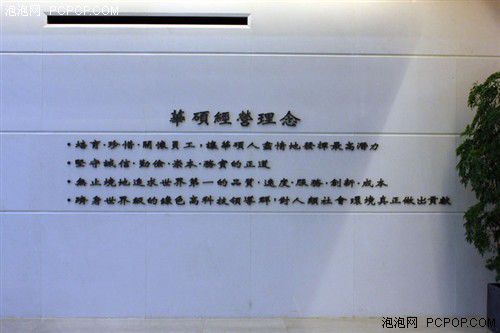 泡泡网 PCPOP.COM
華碩經營理念
・培育・珍惜・關懷員工，讓華碩人盡情地發揮最高潛力
・堅守誠信・勤儉・崇本・務實的正道
・無止境地追求世界第一的品質・速度・服務・創新・成本
・躋身世界級的綠色高科技領導群，對人類社會環境真正做出貢獻
泡泡网 PCPOP.COM